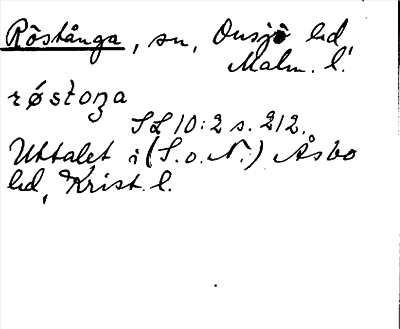 Röstånga, sn, Onsjö hd,
Malm. l.
røstoŋa
SL 10:2 s. 212.
Uttalet i (S. o. N.) Åsbo
hd, Krist. l.